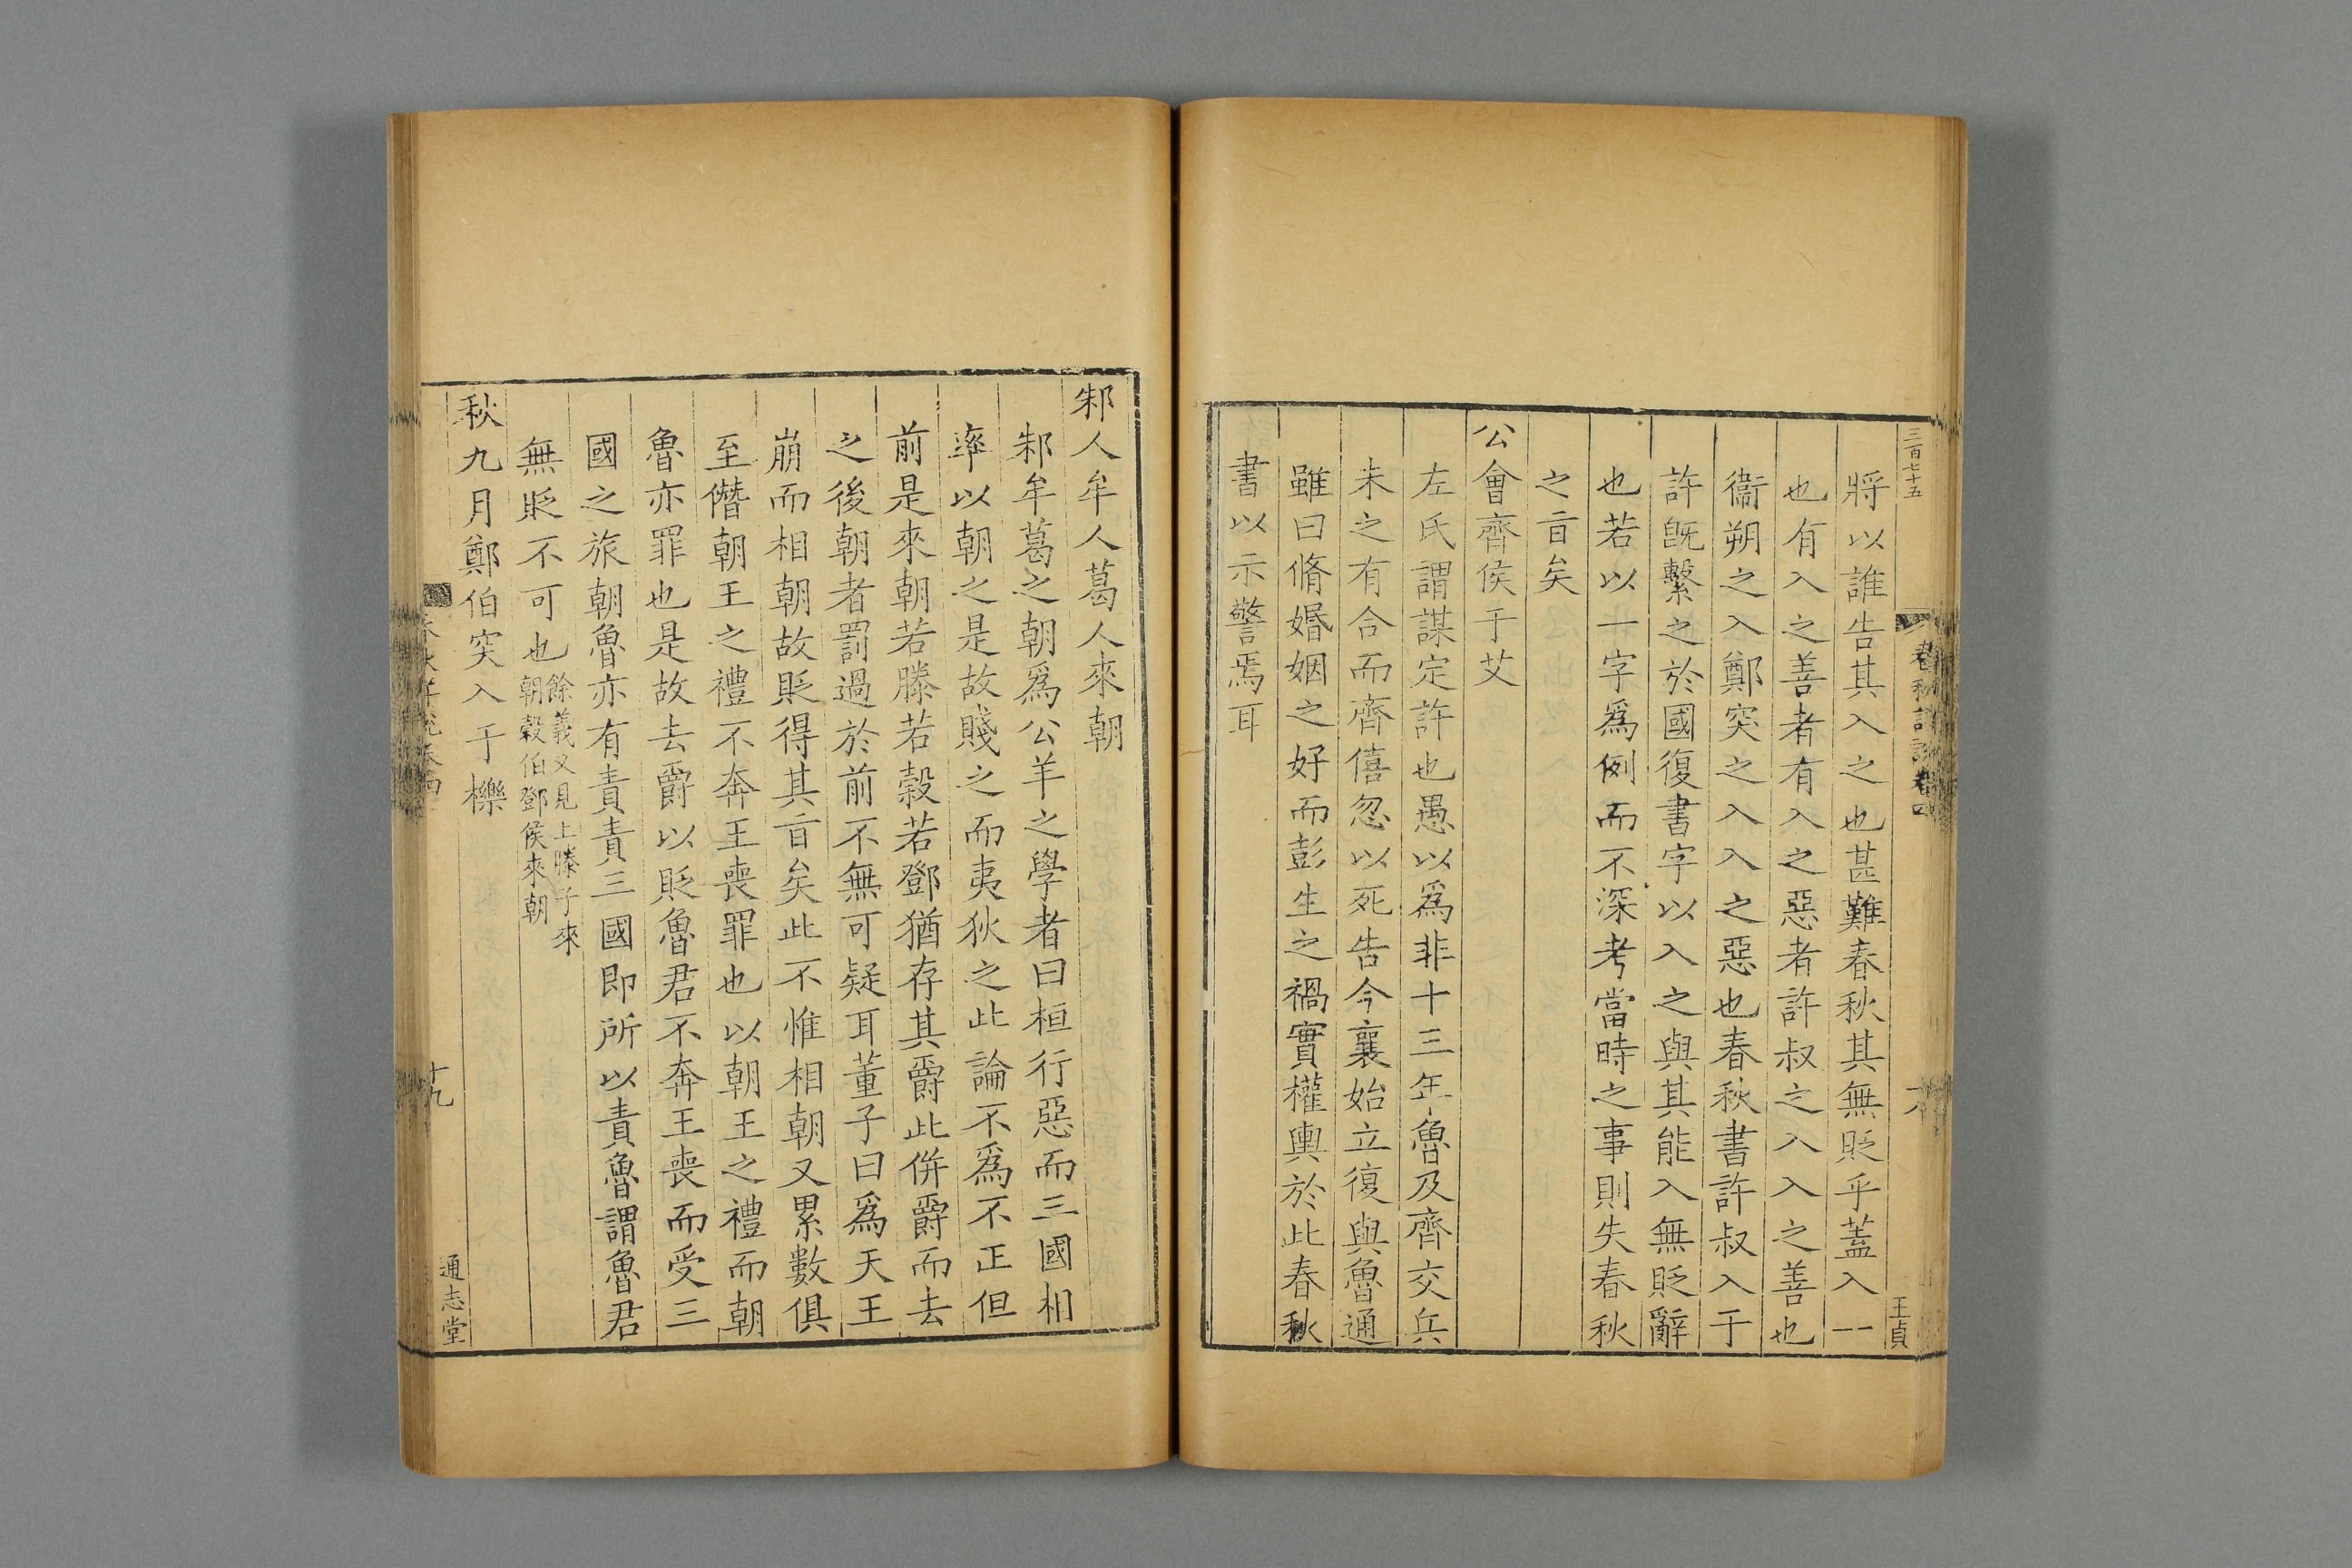 三百七十五
春秋詳說卷四
十八
王貞
將以誰告其入之也甚難春秋其無貶乎蓋入一
也有入之善者有入之惡者許叔之入入之善也
衞朔之入鄭突之入入之惡也春秋書許叔入于
許旣繫之於國復書字以入之與其能入無貶辭
也若以一字爲例而不深考當時之事則失春秋
之㫖矣
公會齊侯于艾
左氏謂謀定許也愚以爲非十三年魯及齊交兵
未之有合而齊僖忽以死告今襄始立復與魯通
雖曰脩婚姻之好而彭生之禍實權輿於此春秋
書以示警焉耳
邾人牟人葛人來朝
邾牟葛之朝爲公羊之學者曰桓行惡而三國相
率以朝之是故賤之而夷狄之此論不爲不正但
前是來朝若滕若穀若鄧猶存其爵此併爵而去
之後朝者罰過於前不無可疑耳董子曰爲天王
崩而相朝故貶得其㫖矣此不惟相朝又累數俱
至僭朝王之禮不奔王喪罪也以朝王之禮而朝
魯亦罪也是故去爵以貶魯君不奔王喪而受三
國之旅朝魯亦有責責三國即所以責魯謂魯君
無貶不可也餘義又見上滕子來
朝穀伯鄧侯來朝
秋九月鄭伯突入于櫟
春秋詳說卷四
十九
通志堂